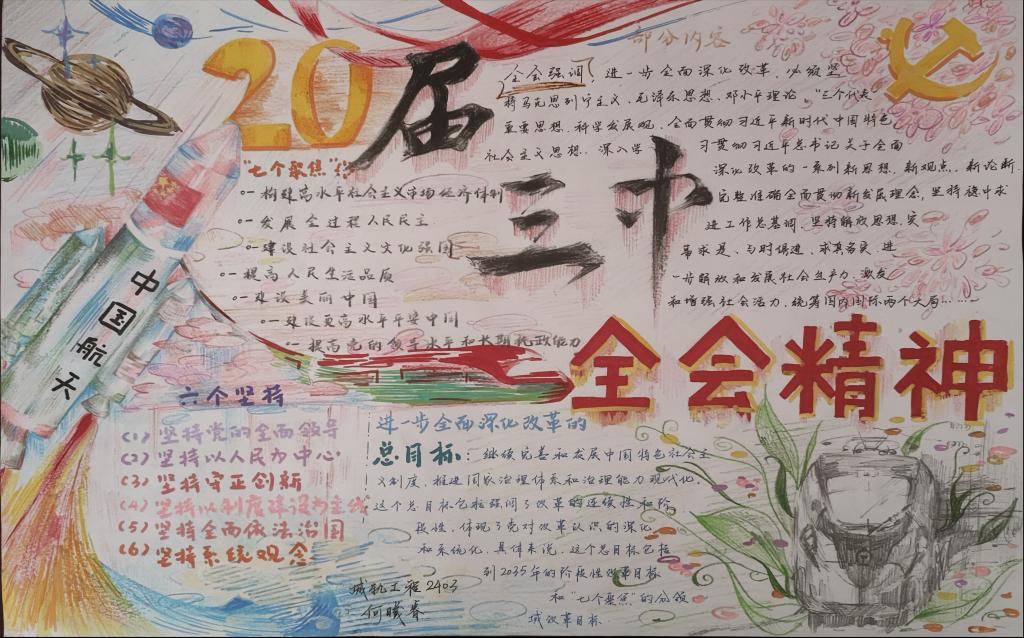 20届
三中
全会精神
中国航天
"七个聚焦"
构建高水平社会主义市场经济体制
发展全过程人民民主
建设社会主义文化强国
提高人民生活品质
建设美丽中国
建设更高水平平安中国
提高党的领导水平和长期执政能力
部分内容
全会强调，进一步全面深化改革，必须坚
持马克思列宁主义、毛泽东思想、邓小平理论、"三个代表"
重要思想、科学发展观，全面贯彻习近平新时代中国特色
社会主义思想，深入学
习贯彻习近平总书记关于全面
深化改革的一系列新思想、新观点、新论断，
完整准确全面贯彻新发展理念，坚持稳中求
进工作总基调，坚持解放思想、实
事求是、与时俱进、求真务实，进
一步解放和发展社会生产力、激发
和增强社会活力，统筹国内国际两个大局……
六个坚持
(1) 坚持党的全面领导
(2) 坚持以人民为中心
(3) 坚持守正创新
(4) 坚持以制度建设为主线
(5) 坚持全面依法治国
(6) 坚持系统观念
进一步全面深化改革的
总目标：继续完善和发展中国特色社会主
义制度，推进国家治理体系和治理能力现代化，
这个总目标包括强调了改革的连续性和阶
段性，体现了党对改革认识的深化
和系统化，具体来说，这个总目标包括
到2035年的阶段性改革目标
和"七个聚焦"的分领
域改革目标
城轨工程2403